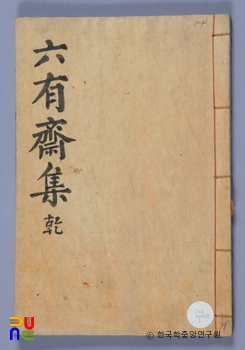 六有齋集
乾
© 한국학중앙연구원